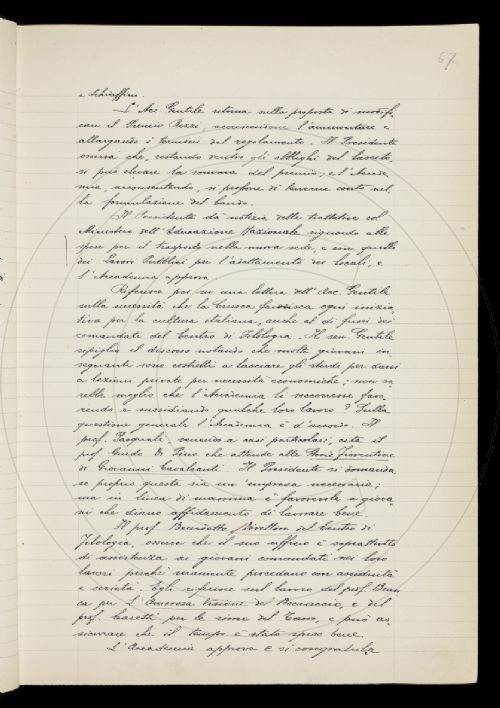 67.
e Schiaffini.
L'Acc. Gentile ritorna sulla proposta di modifi-
care il Premio Rezzi, accrescendone l'ammontare e
allargando i termini del regolamento. Il Presidente
osserva che, restando dentro gli obblighi del lascito,
si può elevare la somma del premio, e l'Accade-
mia, acconsentendo, si propone di tenerne conto nel-
la formulazione del bando.
Il Presidente dà notizia delle trattative col
Ministero dell'Educazione Nazionale riguardo alle
spese per il trasporto nella nuova sede, e con quello
dei Lavori Pubblici per l'adattamento dei locali, e
l'Accademia approva.
Riferisce poi su una lettera dell'Acc. Gentile
sulla necessità che la Crusca favorisca ogni inizia-
tiva per la cultura italiana, anche al di fuori dei
comandati del Centro di Filologia. Il sen. Gentile
ripiglia il discorso notando che molti giovani in-
segnanti sono costretti a lasciare gli studi per darsi
a lezioni private per necessità economiche; non sa-
rebbe meglio che l'Accademia li soccorresse favo-
rendo e sussidiando qualche loro lavoro? Sulla
questione generale l'Accademia è d'accordo. Il
prof. Pasquali, venendo a casi particolari, cita il
prof. Guido Di Pino che attende alle Storie Fiorentine
di Giovanni Cavalcanti. Il Presidente si domanda
se proprio questa sia un'impresa necessaria;
ma in linea di massima è favorevole a giova-
ni che diano affidamento di lavorare bene.
Il prof. Benedetto, Direttore del Centro di
Filologia, osserva che il suo ufficio è soprattutto
di assistenza ai giovani comandati nei loro
lavori perché veramente procedano con assiduità
e serietà. Egli riferisce sul lavoro del prof. Bran-
ca per l'Amorosa Visione del Boccaccio, e del
prof. Caretti per le rime del Tasso, e può as-
sicurare che il tempo è stato speso bene.
L'Accademia approva e si congratula